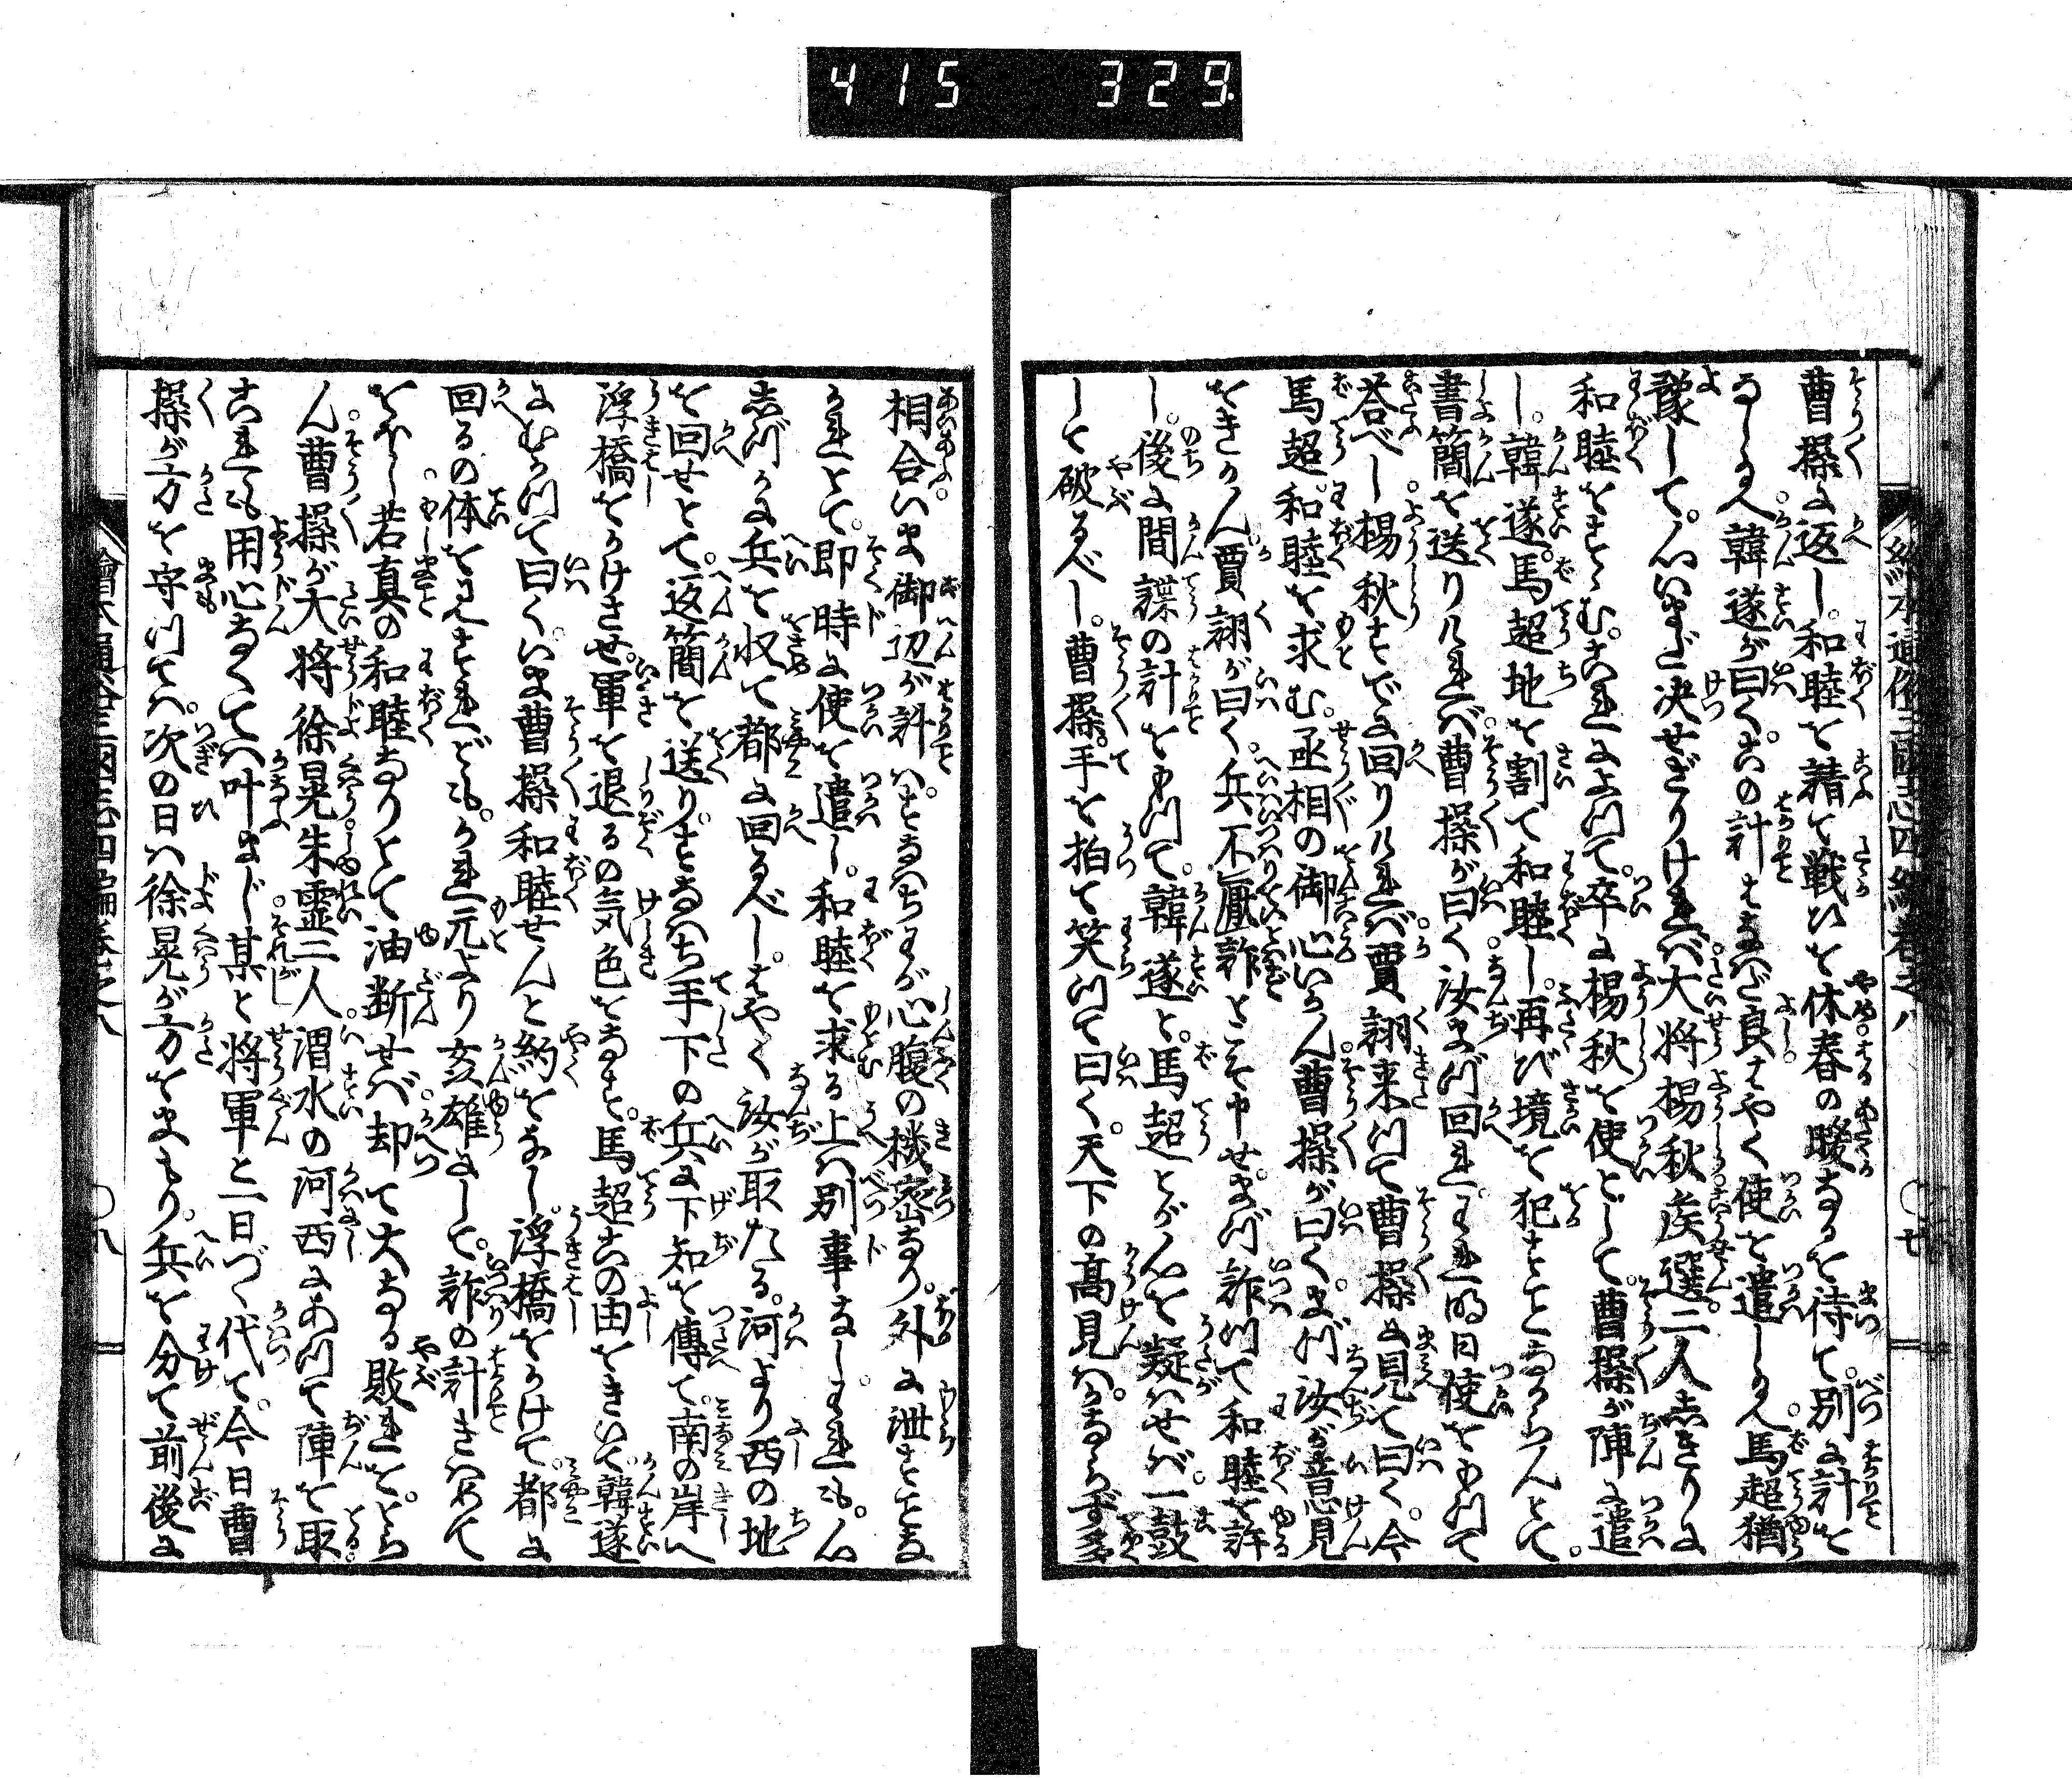 415 329
繪本通俗三國志四編巻之八 〇七
曹操に返し。和睦を請て戦ひを休春の暖なるを待て。別に計を
なしたまへ。韓遂が曰く。この計はなはだ良はやく使を遣したまへ。馬超猶
豫して。心いまだ决せざりければ大将楊秋侯選二人しきりに
和睦をすゝむ。これによつて。卒に楊秋を使として。曹操が陣に遣
し。韓遂。馬超地を割て和睦し。再び境を犯すことなからんとて。
書簡を送りければ。曹操が曰く。汝まづ回れ。われ明日使をもつて
荅べし。楊秋すでに回りければ。賈詡来つて曹操に見て曰く。今
馬超。和睦を求む。丞相の御心いかん。曹操が曰く。まづ汝が意見
をきかん。賈詡が曰く。兵不厭詐とこそ申せ。まづ詐つて和睦を許
し。後に間諜の計をもつて。韓遂と。馬超とがんを疑はせば。一鼓
して破るべし。曹操。手を拍て笑つて曰く。天下の高見は。かならず多
相合。いま御辺が計は。すなはちわが心腹の機密なり。外に泄すことな
かれとて。即時に使を遣し。和睦を求る上は別事なし。われも。心
しづかに兵を収て都に回るべし。はやく汝が取たる。河より西の地
を回せとて。返簡を送り。すなはち手下の兵に下知を傳て。南の岸へ
浮橋をかけさせ。軍を退るの気色をなす。馬超この由をきいて。韓遂
にむかつて曰く。いま曹操和睦せんと約をなし。浮橋をかけて。都に
回るの体を見すれども。かれ元より奸雄にして。詐の計きはめて
をほし。若真の和睦なりとて油断せば。却て大なる敗れをとら
ん。曹操が大将徐晃朱霊二人。渭水の河西にあつて陣を取。
これも用心なくては叶まじ。某と将軍と一日づゝ代て。今日曹
操が方を守つては。次の日は徐晃が方をまもり。兵を分て前後に
繪本通俗三國志四編巻之八 〇八